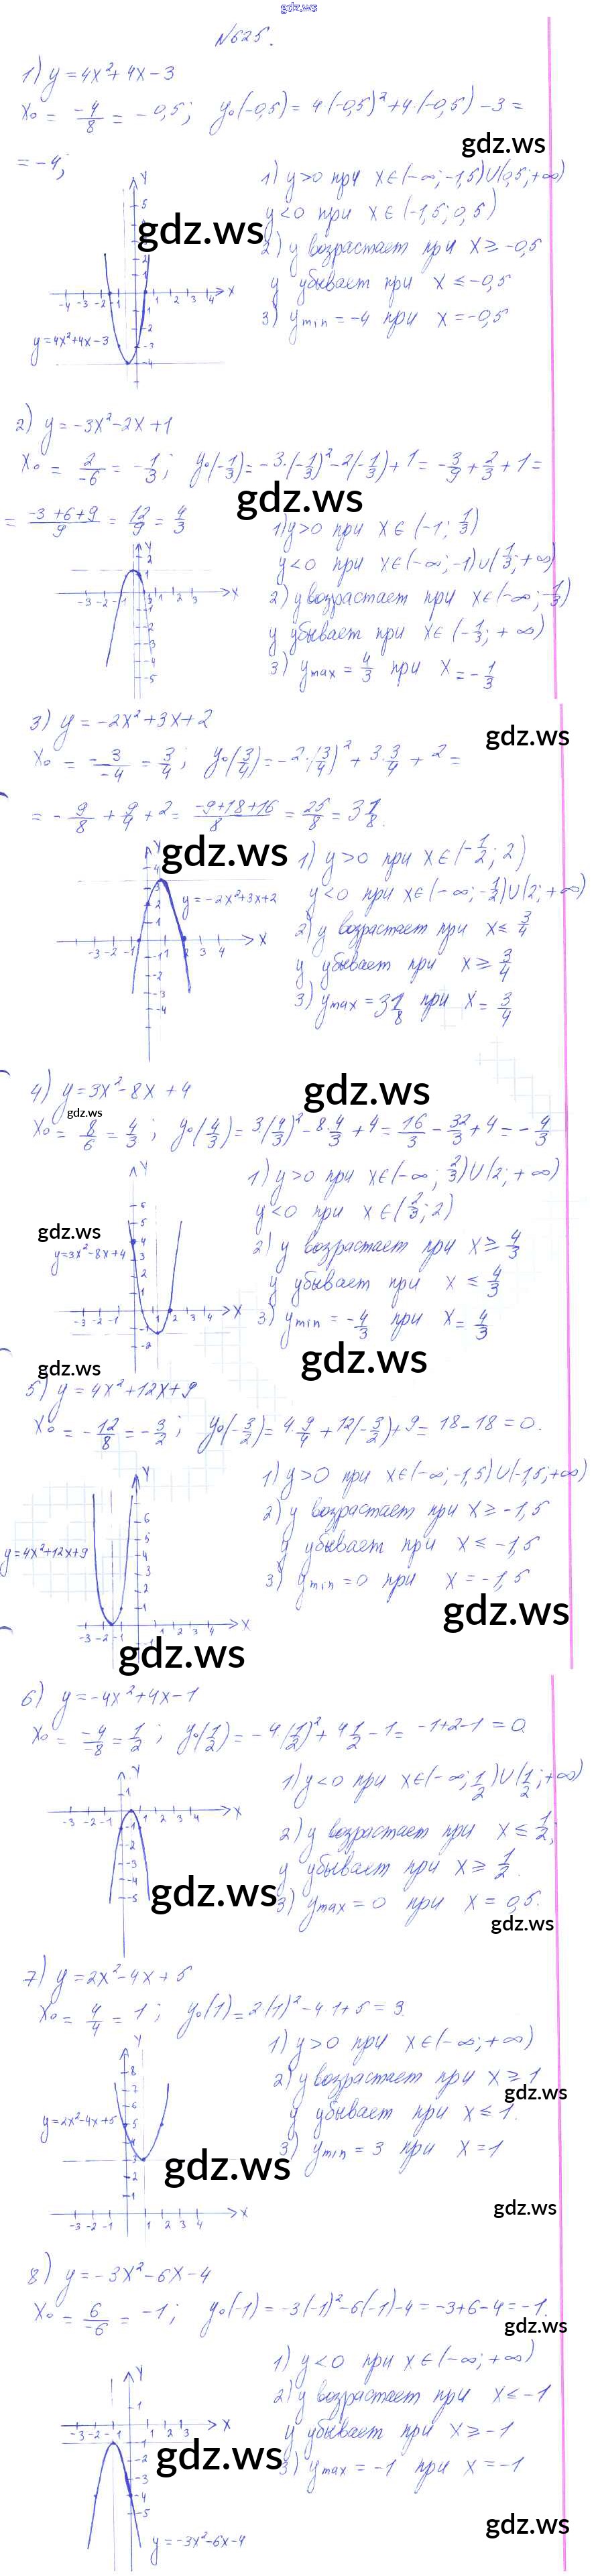 gdz.ws
№625.
1) y = 4x² + 4x − 3
x₀ = −4/8 = −0,5; y₀(−0,5) = 4·(−0,5)² + 4·(−0,5) − 3 =
= −4;
gdz.ws
1) y>0 при x∈(−∞;−1,5)∪(0,5;+∞)
y<0 при x∈(−1,5; 0,5)
gdz.ws
2) y возрастает при x ≥ −0,5
y убывает при x ≤ −0,5
3) y min = −4 при x = −0,5
y=4x²+4x−3
2) y = −3x² − 2x + 1
x₀ = 2/−6 = −1/3; y₀(−1/3) = −3·(−1/3)² − 2(−1/3) + 1 = −3/9 + 2/3 + 1 =
gdz.ws
= −3+6+9/9 = 12/9 = 4/3
1) y>0 при x∈(−1; 1/3)
y<0 при x∈(−∞;−1)∪(1/3;+∞)
2) y возрастает при x∈(−∞;−1/3)
y убывает при x∈(−1/3; +∞)
3) y max = 4/3 при x = −1/3
3) y = −2x² + 3x + 2
gdz.ws
x₀ = −3/−4 = 3/4; y₀(3/4) = −2·(3/4)² + 3·3/4 + 2 =
= −9/8 + 9/4 + 2 = −9+18+16/8 = 25/8 = 3 1/8.
gdz.ws
1) y>0 при x∈(−1/2; 2)
y=−2x²+3x+2
y<0 при x∈(−∞;−1/2)∪(2;+∞)
2) y возрастает при x ≤ 3/4
y убывает при x ≥ 3/4
3) y max = 3 1/8 при x = 3/4
4) y = 3x² − 8x + 4
gdz.ws
gdz.ws
x₀ = 8/6 = 4/3; y₀(4/3) = 3(4/3)² − 8·4/3 + 4 = 16/3 − 32/3 + 4 = −4/3
1) y>0 при x∈(−∞; 2/3)∪(2;+∞)
y<0 при x∈(2/3; 2)
gdz.ws
y=3x²−8x+4
2) y возрастает при x ≥ 4/3
y убывает при x ≤ 4/3
3) y min = −4/3 при x = 4/3
gdz.ws
gdz.ws
5) y = 4x² + 12x + 9
x₀ = −12/8 = −3/2; y₀(−3/2) = 4·9/4 + 12(−3/2) + 9 = 18 − 18 = 0.
1) y>0 при x∈(−∞;−1,5)∪(−1,5;+∞)
2) y возрастает при x ≥ −1,5
y=4x²+12x+9
y убывает при x ≤ −1,5
3) y min = 0 при x = −1,5
gdz.ws
gdz.ws
6) y = −4x² + 4x − 1
x₀ = −4/−8 = 1/2; y₀(1/2) = −4·(1/2)² + 4·1/2 − 1 = −1+2−1 = 0.
1) y<0 при x∈(−∞; 1/2)∪(1/2;+∞)
2) y возрастает при x ≤ 1/2;
y убывает при x ≥ 1/2.
gdz.ws
3) y max = 0 при x = 0,5.
gdz.ws
7) y = 2x² − 4x + 5
x₀ = 4/4 = 1; y₀(1) = 2·(1)² − 4·1 + 5 = 3.
1) y>0 при x∈(−∞;+∞)
2) y возрастает при x ≥ 1
gdz.ws
y=2x²−4x+5
y убывает при x ≤ 1.
3) y min = 3 при x = 1
gdz.ws
gdz.ws
8) y = −3x² − 6x − 4
x₀ = 6/−6 = −1; y₀(−1) = −3(−1)² − 6(−1) − 4 = −3+6−4 = −1.
gdz.ws
1) y<0 при x∈(−∞;+∞)
2) y возрастает при x ≤ −1
y убывает при x ≥ −1
gdz.ws
3) y max = −1 при x = −1
gdz.ws
y=−3x²−6x−4